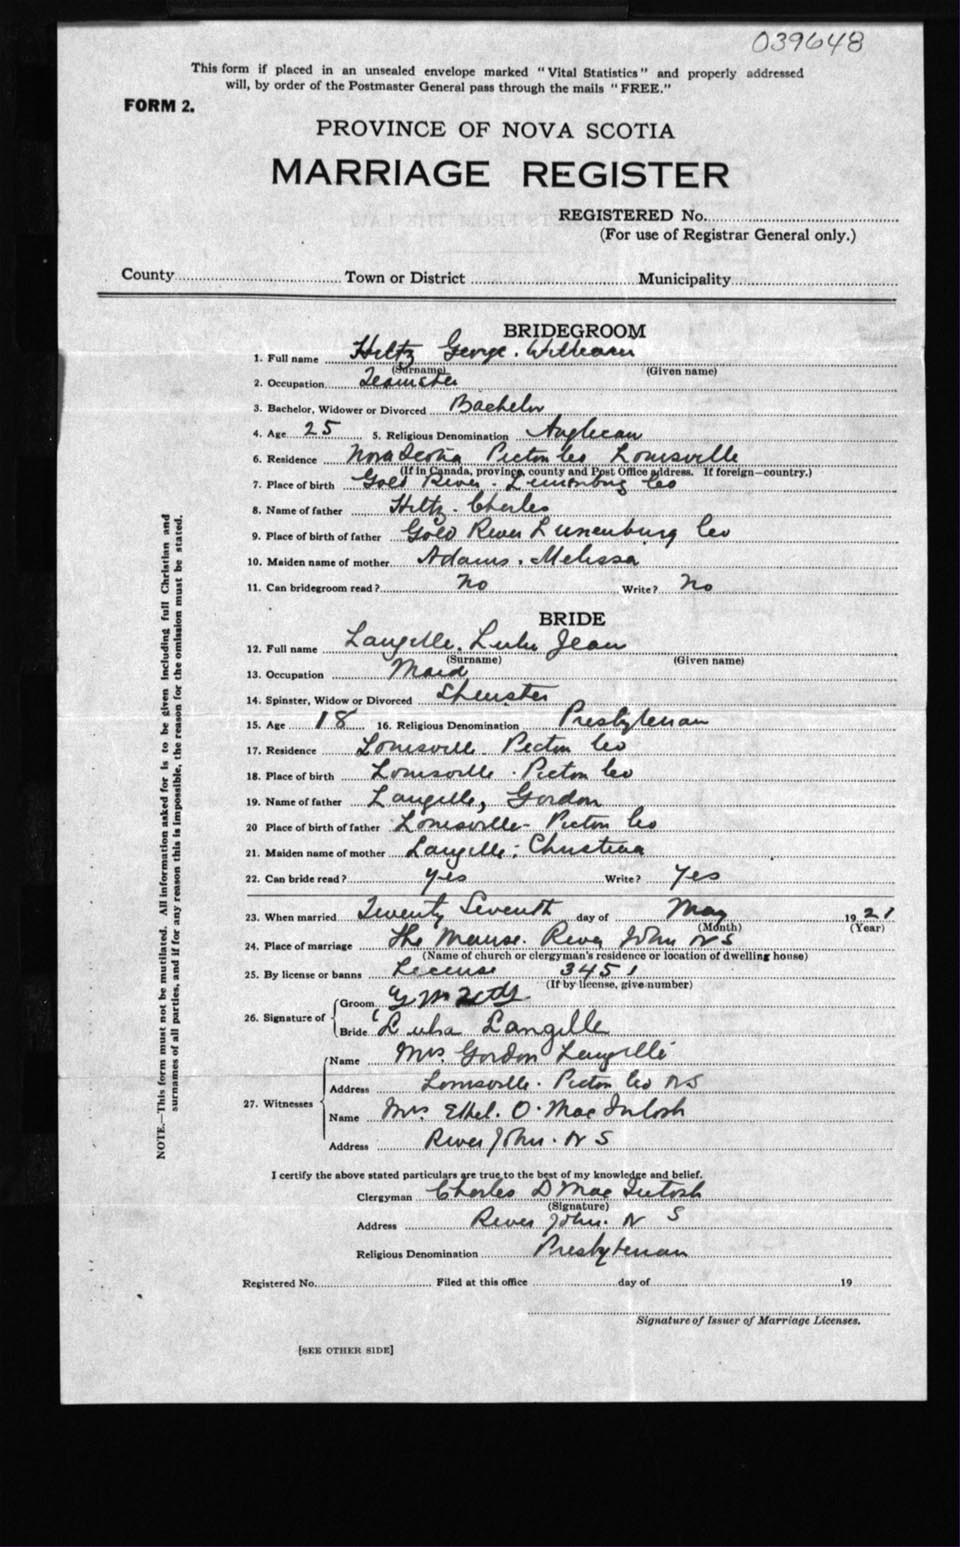 039648
This form if placed in an unsealed envelope marked "Vital Statistics" and properly addressed
will, by order of the Postmaster General pass through the mails "FREE."
FORM 2.
PROVINCE OF NOVA SCOTIA
MARRIAGE REGISTER
REGISTERED No.
(For use of Registrar General only.)
County Town or District Municipality
BRIDEGROOM
1. Full name Hiltz George. William
(Surname) (Given name)
2. Occupation Teamster
3. Bachelor, Widower or Divorced Bachelor
4. Age 25 5. Religious Denomination Anglican
6. Residence Nova Scotia Pictou Co Louisville
(If in Canada, province, county and Post Office address. If foreign—country.)
7. Place of birth Gold River - Lunenburg Co
8. Name of father Hiltz. Charles
9. Place of birth of father Gold River Lunenburg Co
10. Maiden name of mother Adams, Melissa
11. Can bridegroom read? No Write? No
BRIDE
12. Full name Langille. Lulu Jean
(Surname) (Given name)
13. Occupation Maid
14. Spinster, Widow or Divorced Spinster
15. Age 18 16. Religious Denomination Presbyterian
17. Residence Louisville Pictou Co
18. Place of birth Louisville. Pictou Co
19. Name of father Langille, Gordon
20 Place of birth of father Louisville - Pictou Co
21. Maiden name of mother Langille, Christina
22. Can bride read? Yes Write? Yes
23. When married Twenty Seventh day of May 1921
(Month) (Year)
24. Place of marriage The Manse. River John N S
(Name of church or clergyman's residence or location of dwelling house)
25. By license or banns License 3451
(If by license, give number)
26. Signature of Groom
Bride Lulua Langille
27. Witnesses Name Mrs. Gordon Langille
Address Louisville. Pictou Co N S
Name Mrs Ethel. O. MacIntosh
Address River John. N S
I certify the above stated particulars are true to the best of my knowledge and belief.
Clergyman Charles D MacIntosh
(Signature)
Address River John. N S
Religious Denomination Presbyterian
Registered No. Filed at this office day of 19
Signature of Issuer of Marriage Licenses.
[SEE OTHER SIDE]
NOTE.—This form must not be mutilated. All information asked for is to be given including full Christian and
surnames of all parties, and if for any reason this is impossible, the reason for the omission must be stated.